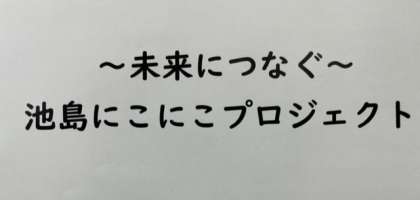 ～未来につなぐ～
池島にこにこプロジェクト